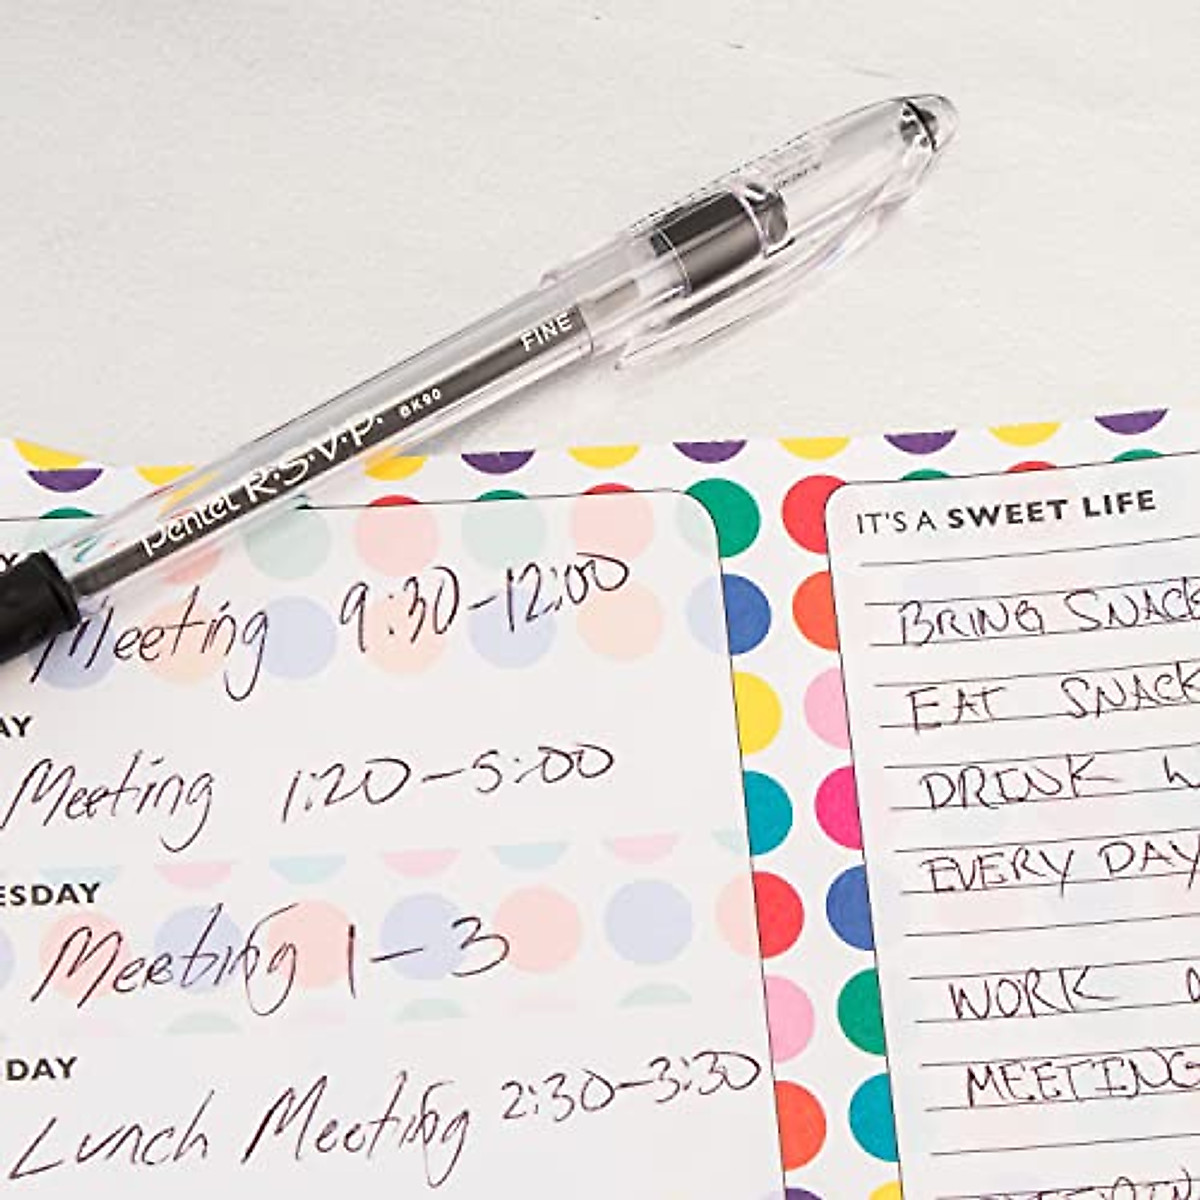 FINE
BK90
Pentel R.S.V.P.
Y
Meeting 9:30-12:00
AY
Meeting 1:20-5:00
ESDAY
Meeting 1-3
DAY
Lunch Meeting 2:30-3:30
IT'S A SWEET LIFE
BRING SNACK
EAT SNACK
DRINK
EVERY DAY
WORK
MEETING